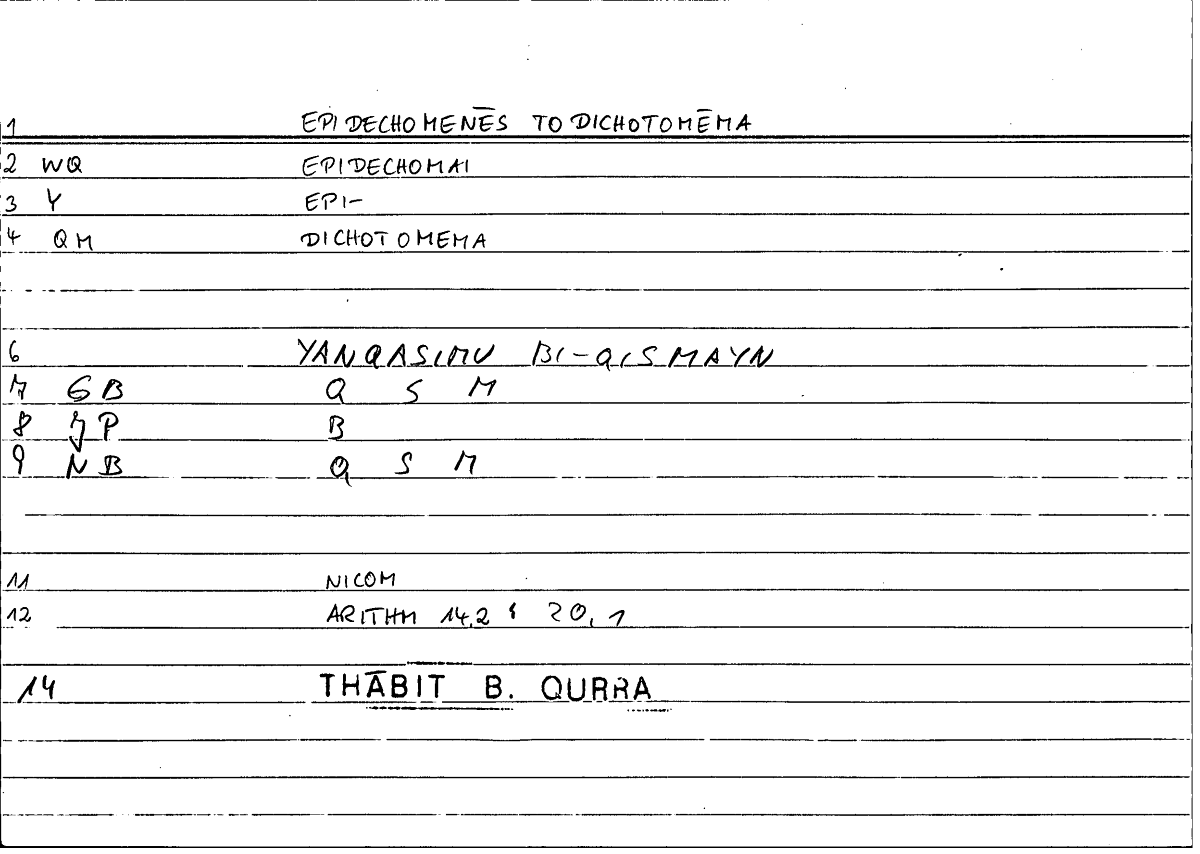 1 EPIDECHOMENĒS TO DICHOTOMĒMA
2 WQ EPIDECHOMAI
3 Y EPI-
4 QM DICHOTOMEMA
6 YANQASIMU BI-QISMAYN
7 GB Q S M
8 JP B
9 NB Q S M
11 NICOM
12 ARITHM 14,2 ; 20,1
14 THĀBIT B. QURRA